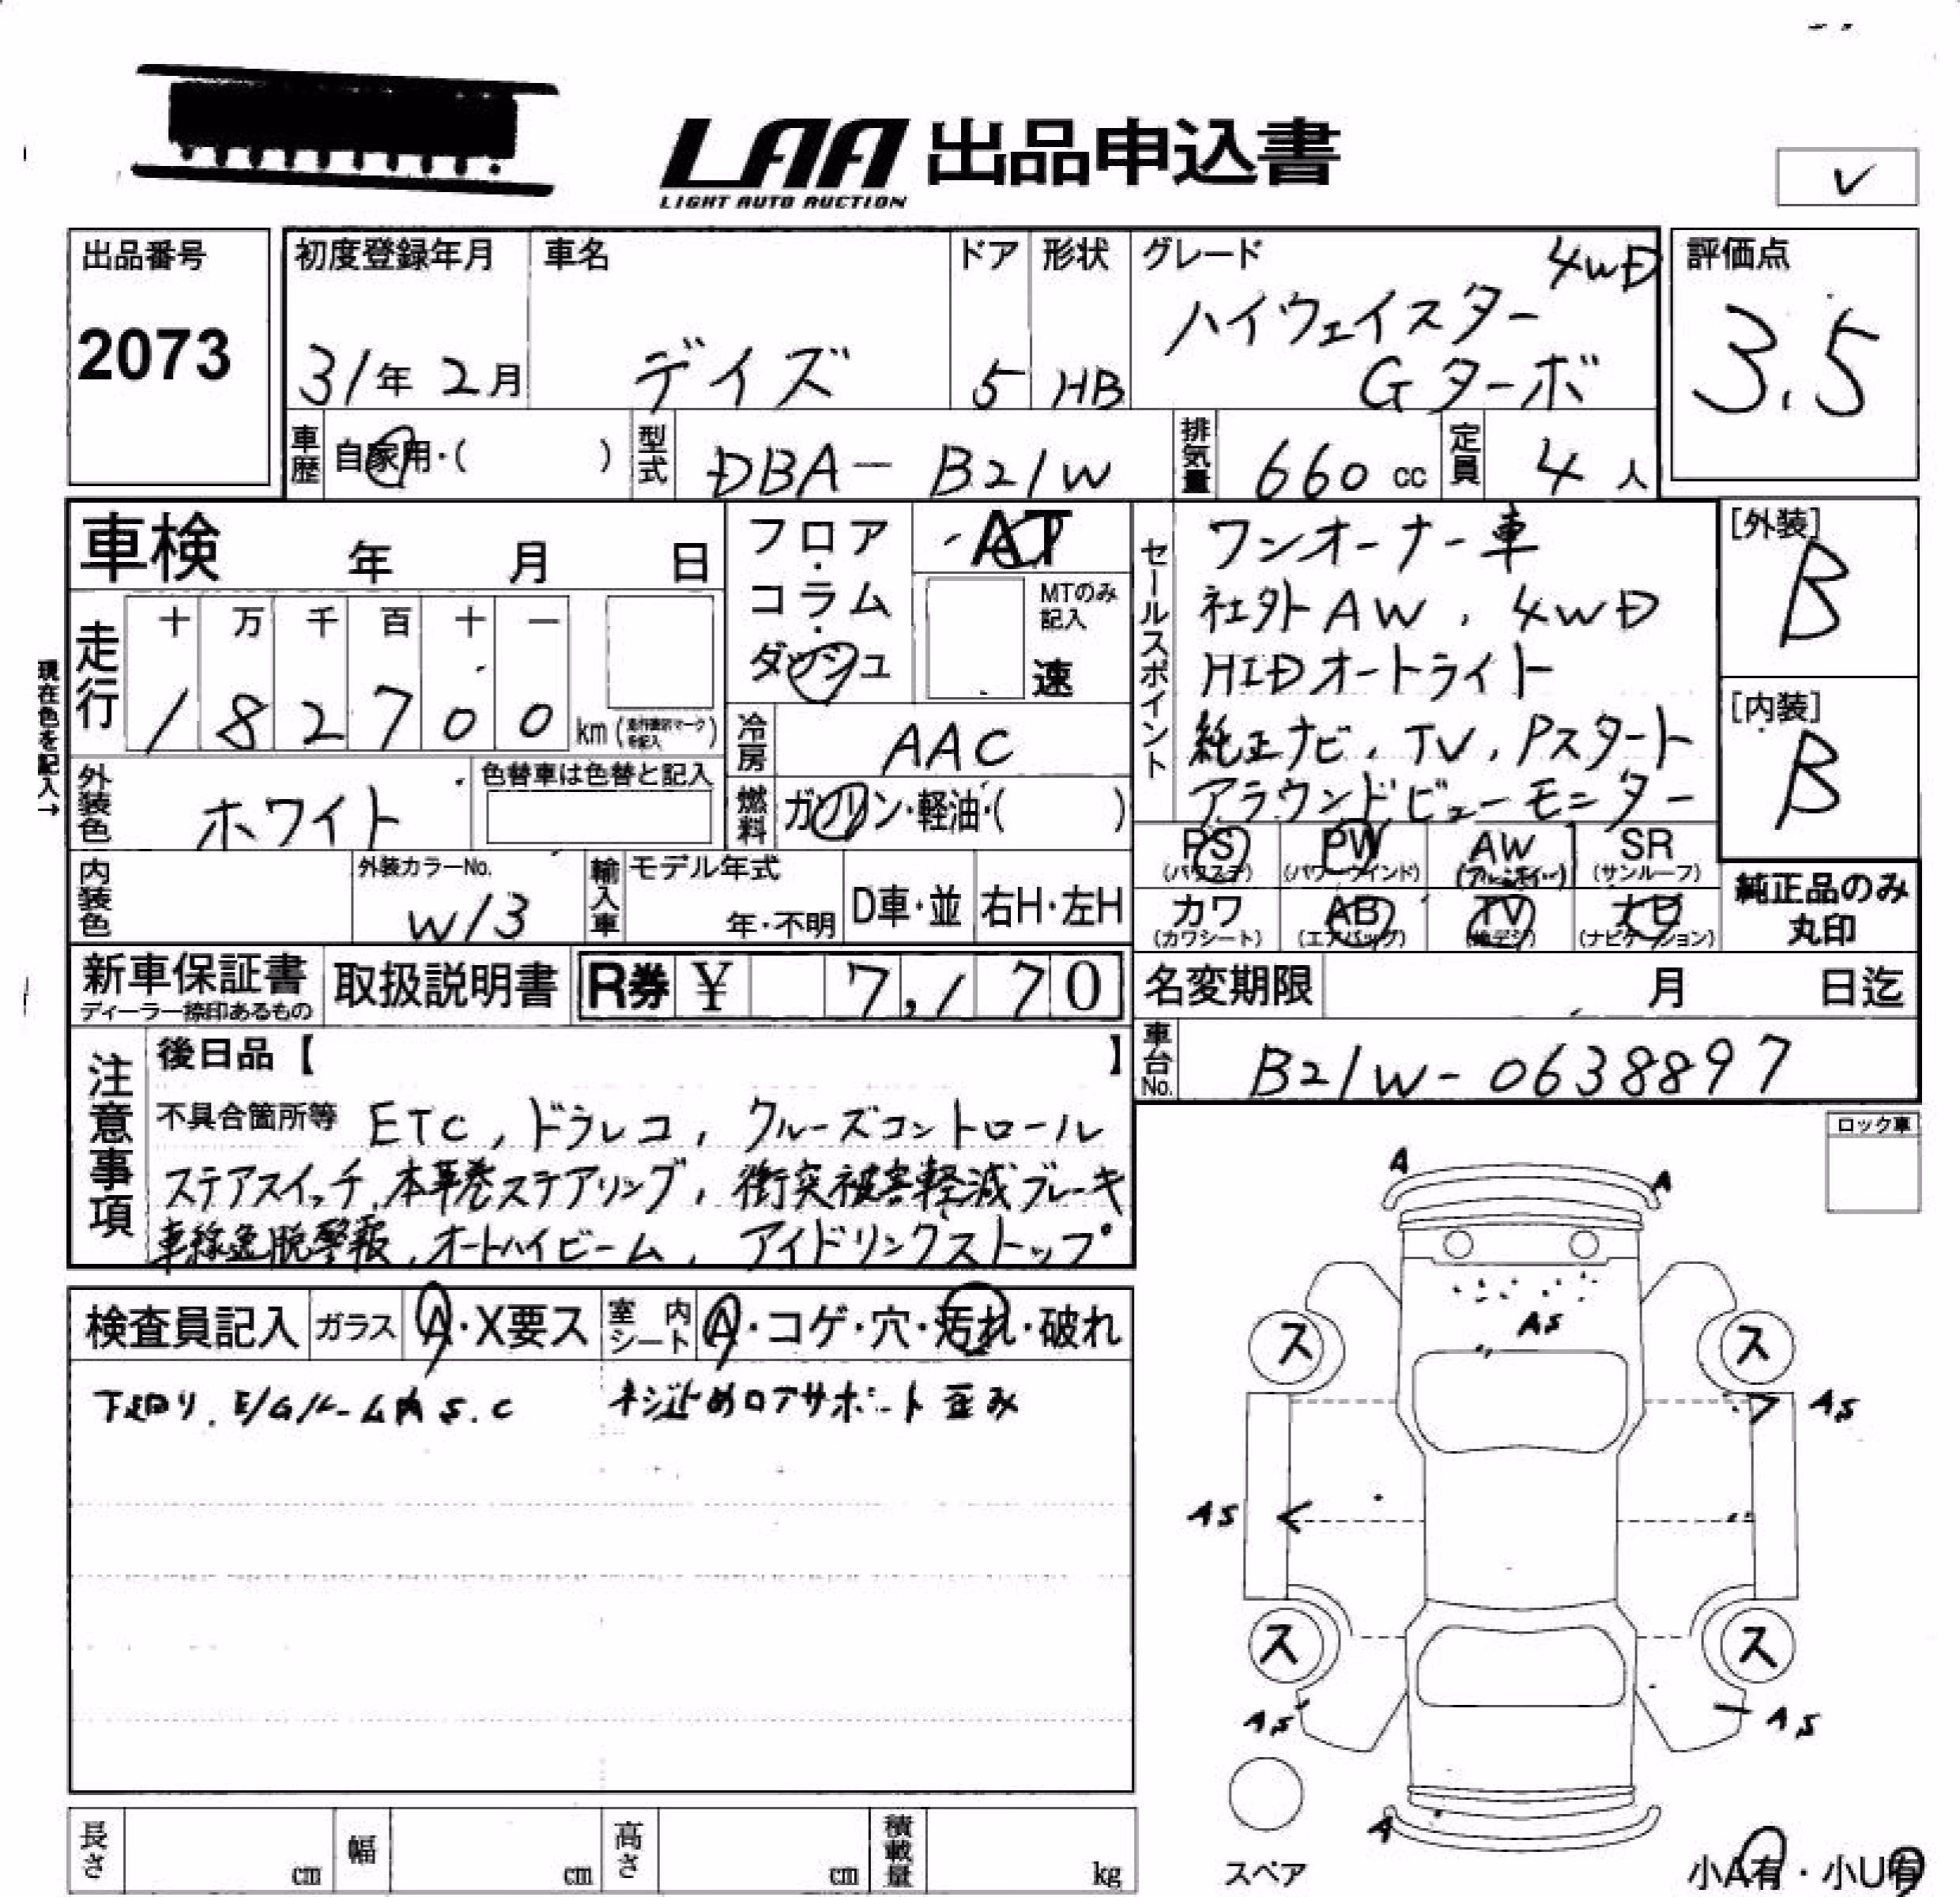 LAA 出品申込書
LIGHT AUTO AUCTION
出品番号
2073
初度登録年月
31年 2月
車名
デイズ
ドア
5
形状
HB
グレード
4WD
ハイウェイスター
Gターボ
評価点
3.5
車歴
自家用・( )
型式
DBA- B21W
排気量
660 cc
定員
4 人
車検 年 月 日
走行
十 万 千 百 十 一
1 8 2 7 0 0 km
現在色を記入→
外装色
ホワイト
色替車は色替と記入
内装色
外装カラーNo.
W13
フロア・コラム・ダッシュ
AT
MTのみ記入
速
冷房
AAC
燃料
ガソリン・軽油・( )
輸入車
モデル年式
年・不明
D車・並
右H・左H
セールスポイント
ワンオーナー車
社外AW, 4WD
HIDオートライト
純正ナビ, TV, Pスタート
アラウンドビューモニター
[外装]
B
[内装]
B
PS (パワステ) PW (パワーウインド) AW (アルミホイール) SR (サンルーフ)
カワ (カワシート) AB (エアバッグ) TV (地デジ) ナビ (ナビゲーション)
純正品のみ
丸印
新車保証書
ディーラー捺印あるもの
取扱説明書
R券 ¥ 7,170
名変期限 月 日迄
車台No.
B21W-0638897
注意事項
後日品【 】
不具合箇所等 ETC, ドラレコ, クルーズコントロール
ステアスイッチ, 本革巻ステアリング, 衝突被害軽減ブレーキ
車線逸脱警報, オートハイビーム, アイドリングストップ
ロック車
検査員記入
ガラス
A・X要ス
室内シート
A・コゲ・穴・汚れ・破れ
下廻り, E/Gルーム内 S.C ネジ止めロアサポート 歪み
A A
AS
ス ス
AS
AS
ス ス
AS AS
A
スペア
小A有・小U有
長さ cm
幅 cm
高さ cm
積載量 kg